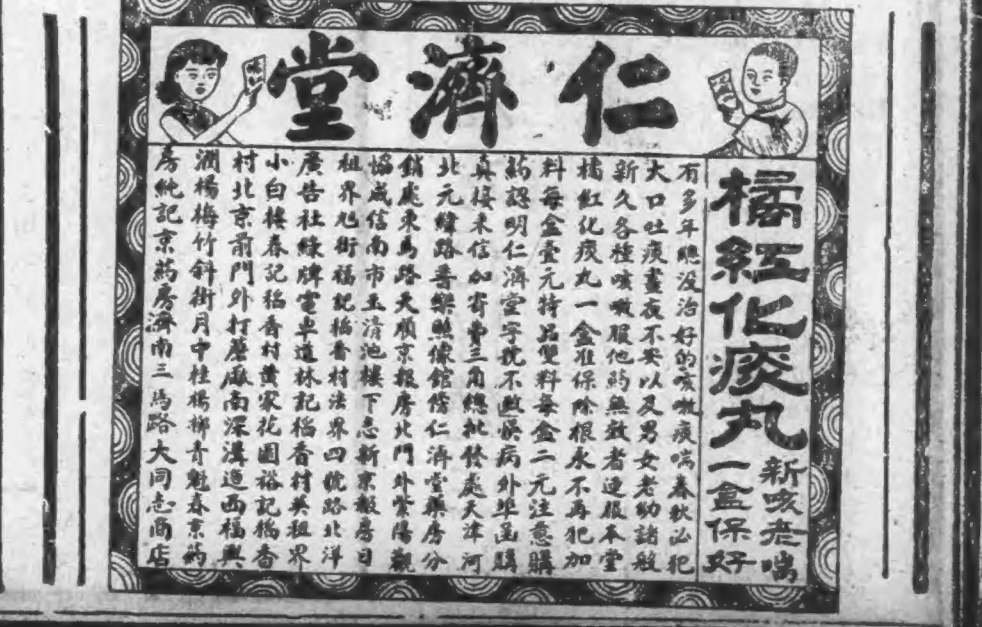 仁濟堂
橘紅化痰丸
新咳老喘
一盒保好
有多年總没治好的咳嗽痰喘春秋必犯
大口吐痰晝夜不安以及男女老幼諸般
新久各種咳嗽服他葯無效者速服本堂
橘紅化痰丸一盒准保除根永不再犯加
料每盒壹元特品雙料每盒二元注意購
葯認明仁濟堂字號不致悞病外埠函購
真接來信加寄費三角總批發處天津河
北元緯路普樂照像館傍仁濟堂藥房分
銷處東馬路天順京報房北門外紫陽觀
協威信南市玉清池樓下志新京報房日
租界旭街福記稻香村法界四號路北洋
廣告社綠牌電車道林記稻香村英租界
小白樓春記稻香村黄家花園裕記稻香
村北京前門外打磨廠南深溝道西福興
潤楊梅竹斜街月中桂楊柳青魁春京葯
房純記京葯房濟南三馬路大同志商店